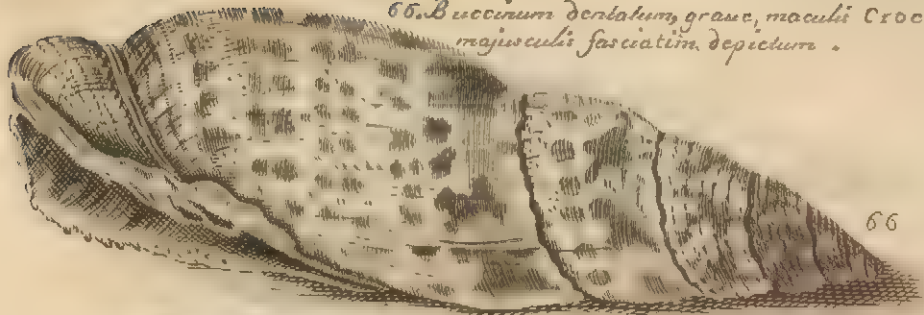 66. Buccinum dentatum, graue, maculis Croc
majusculis fasciatim depictum.
66